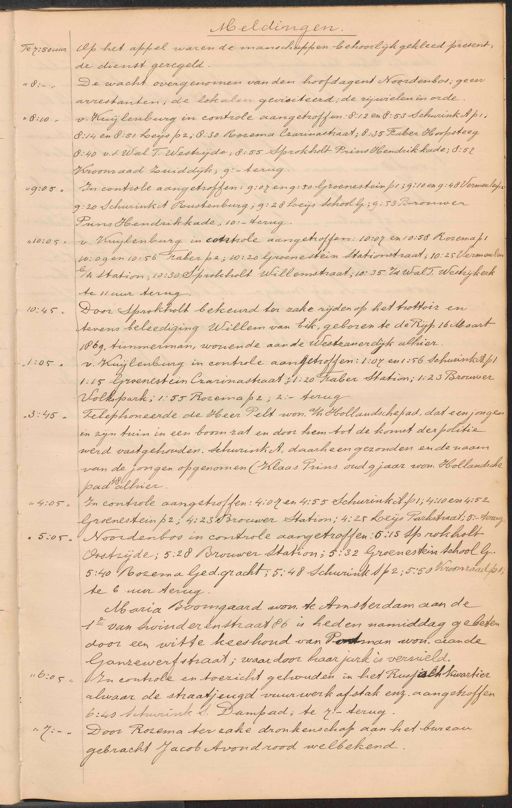 Meldingen.
Te 7:30 uur Op het appel waren de manschappen behoorlijk gekleed present,
de dienst geregeld.
" 8:-. De wacht overgenomen van den hoofdagent Noordenbos; geen
arrestanten, de lokalen gevisiteerd, de rijwielen in orde.
" 8:10. v. Kuijlenburg in controle aangetroffen: 8:12 en 8:53 Schurink A p1,
8:14 en 8:51 Leijs p2; 8:30 Rozema Czarinastraat; 8:35 Faber Hoopsteeg
8:40 v.d. Wal T. Westzijde, 8:55 Sprokholt Prins Hendrikkade; 8:52
Vroomaad Zuiddijk, 9:- terug.
" 9:05. In controle aangetroffen: 9:07 en 9:50 Groenestein p1; 9:10 en 9:48 Vermeulen p2
9:20 Schurink A Rustenburg; 9:28 Leijs school G; 9:53 Brouwer
Prins Hendrikkade, 10:- terug.
" 10:05. v. Kuijlenburg in controle aangetroffen: 10:07 en 10:58 Rozema p1
10:09 en 10:56 Faber p2, 10:20 Groenestein Stationstraat, 10:25 Vermeulen
Station; 10:30 Sprokholt Willemstraat; 10:35 v.d. Wal T. Westzijkerk
te 11 uur terug.
10:45. Door Sprokholt bekeurd ter zake rijden op het trottoir en
tevens beleediging Willem van Eik, geboren te de Rijp 16 Maart
1869, timmerman, wonende aan de Westzanerdijk alhier.
" 1:05. v. Kuijlenburg in controle aangetroffen: 1:07 en 1:56 Schurink A p1
1:15 Groenestein Czarinastraat; 1:20 Faber Station; 1:23 Brouwer
Volkspark; 1:55 Rozema p2, 2:- terug.
" 3:45. Telephoneerde de Heer Pelt won. a/h Hollandschepad, dat een jongen
in zijn tuin in een boom zat en door hem tot de komst der politie
werd vastgehouden. Schurink A. daarheen gezonden en de naam
van de jongen opgenomen (Klaas Prins oud 9 jaar won. Hollandsche
pad alhier.
" 4:05. In controle aangetroffen: 4:07 en 4:55 Schurink A p1; 4:10 en 4:52
Groenestein p2; 4:23 Brouwer Station; 4:25 Leijs Parkstraat; 5:- terug
5:05. Noordenbos in controle aangetroffen: 5:15 Sprokholt
Oostzijde; 5:28 Brouwer Station; 5:32 Groenestein school G.
5:40 Rozema Ged. gracht; 5:48 Schurink A p2; 5:50 Vroomaad p1;
te 6 uur terug.
Maria Boomgaard won. te Amsterdam aan de
1e van Swindenstraat 86 is heden namiddag gebeten
door een witte keeshond van won. aan de
Ganzewerfstraat; waardoor haar jurk is vernield.
" 6:05. In controle en toezicht gehouden in het kwartier
alwaar de straatjeugd vuurwerk afstak enz. aangetroffen
6:45 Schurink A. Dampad; te 7:- terug.
" 7:- Door Rozema ter zake dronkenschap aan het bureau
gebracht Jacob Avondrood welbekend.